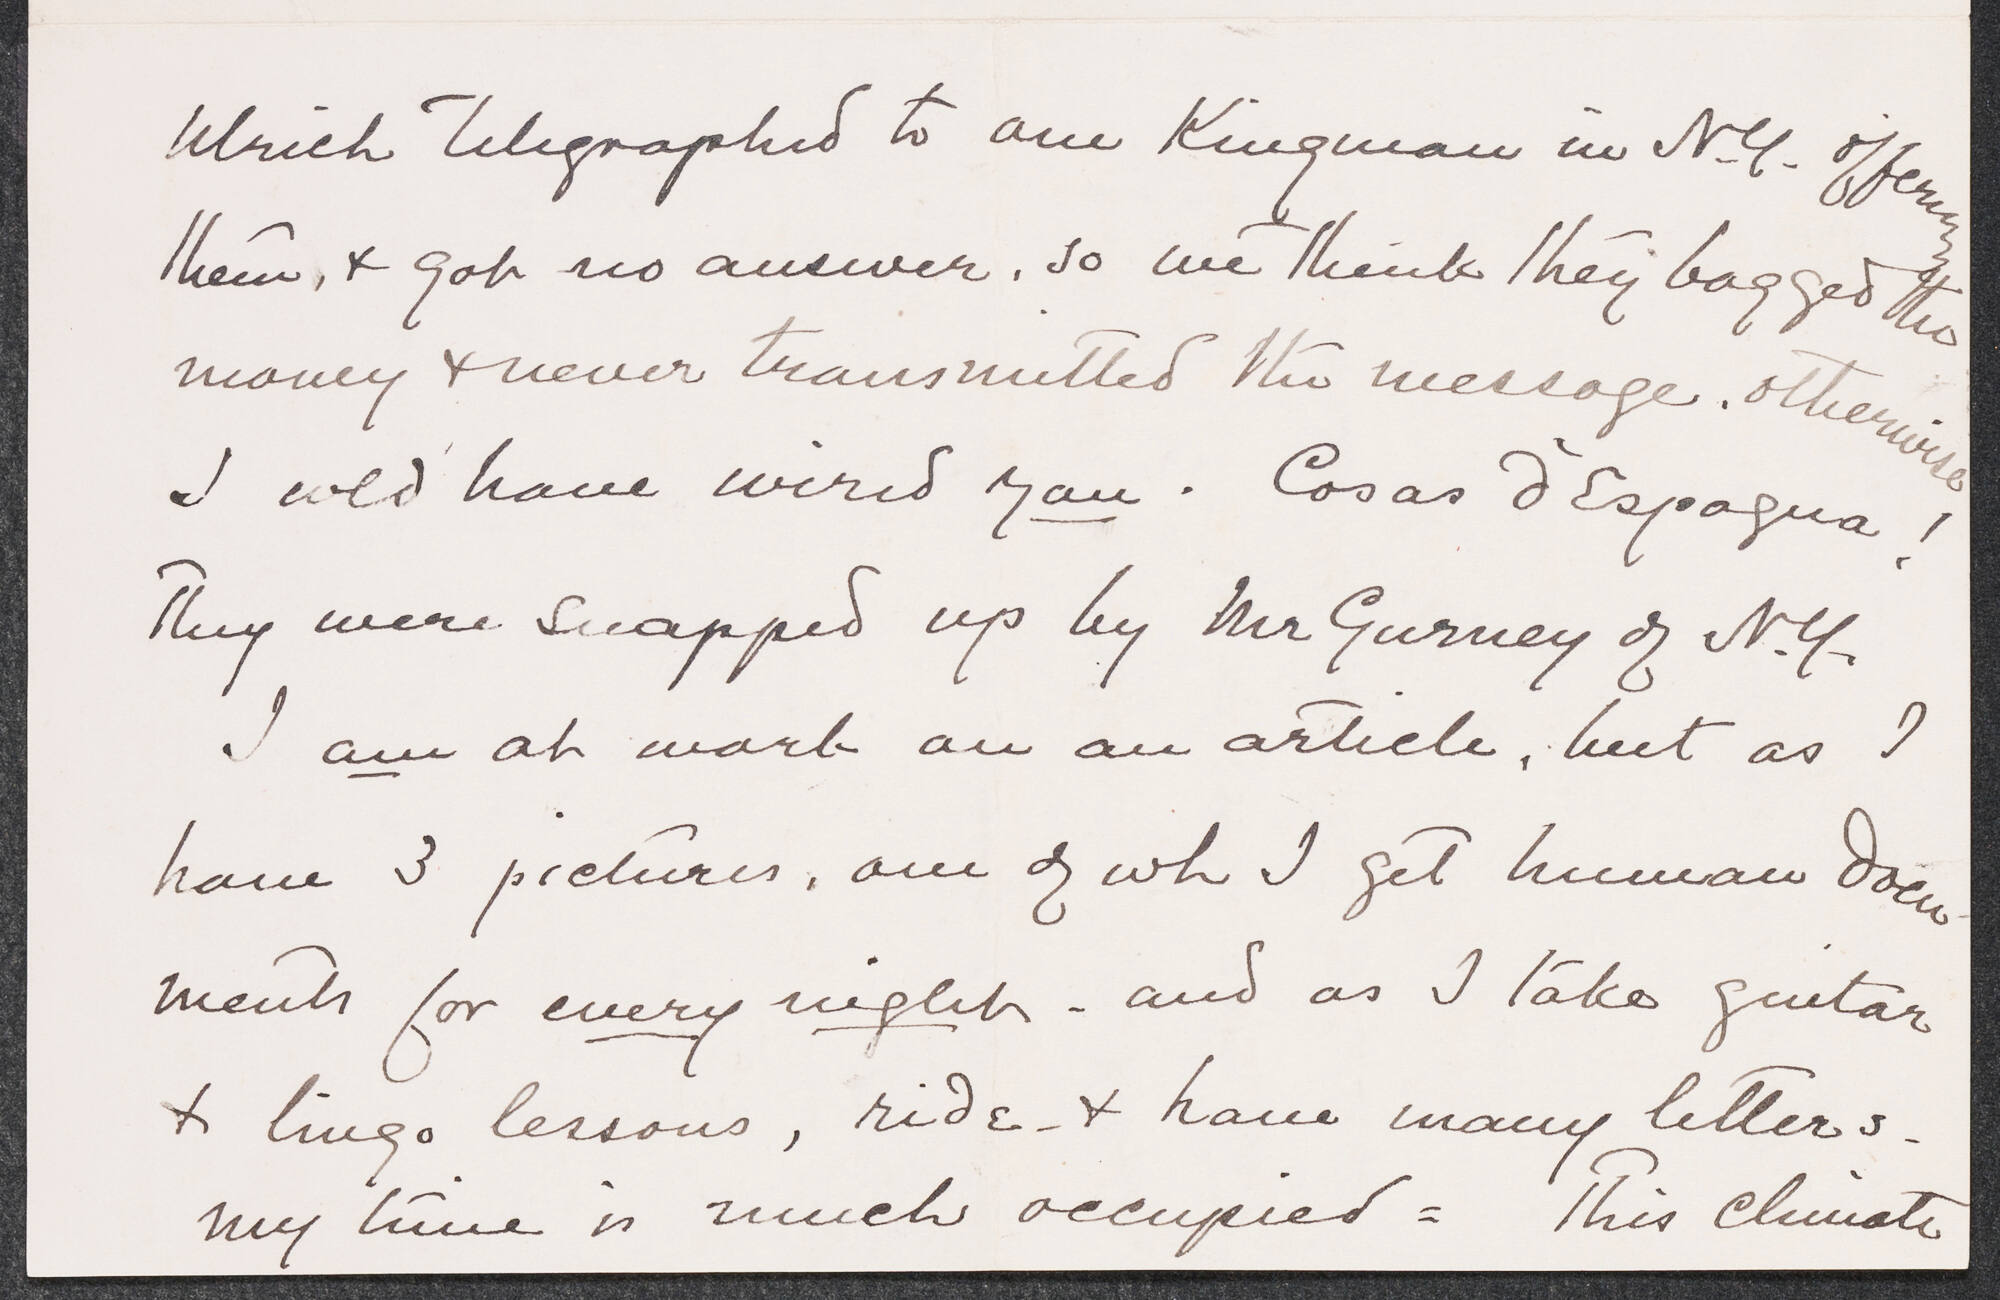 Ulrich Telegraphed to one Kingman in N.Y. offering
them, & got no answer, so we think they bagged the
money & never transmitted the message. otherwise
I wld have wired you. Cosas d'Espagna!
They were snapped up by Mr Gurney of N.Y.
I am at work on an article, but as I
have 3 pictures, one of wh I get human docu-
ments for every night - and as I take guitar
& lingo lessons, ride - & have many letters -
my time is much occupied = This climate